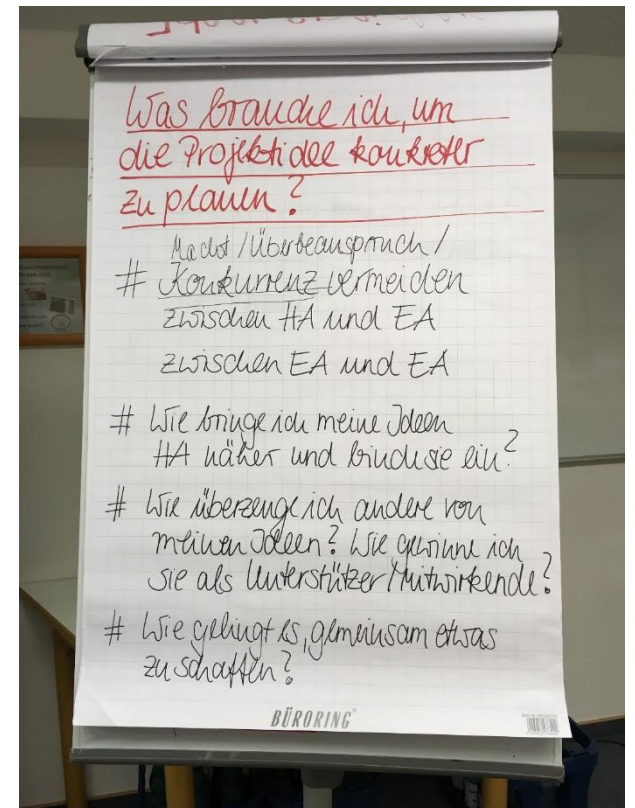 Was brauche ich, um
die Projektidee konkreter
zu planen?
Macht/Überbeanspruch/
# Konkurrenz vermeiden
zwischen HA und EA
zwischen EA und EA
# Wie bringe ich meine Ideen
HA näher und binde sie ein?
# Wie überzeuge ich andere von
meinen Ideen? Wie gewinne ich
sie als Unterstützer/Mitwirkende?
# Wie gelingt es, gemeinsam etwas
zu schaffen?
BÜRORING